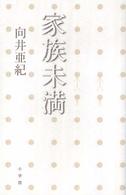 家族未満
向井亜紀
小学館